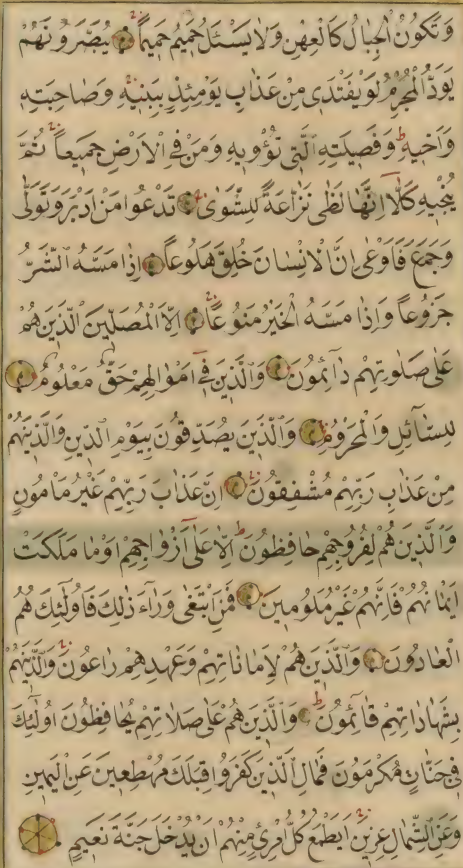 وَتَكُونُ الْجِبَالُ كَالْعِهْنِ وَلَا يَسْئَلُ حَمِيمٌ حَمِيماً يُبَصَّرُونَهُمْ
يَوَدُّ الْمُجْرِمُ لَوْ يَفْتَدِى مِنْ عَذَابِ يَوْمِئِذٍ بِبَنِيهِ وَصَاحِبَتِهِ
وَاَخِيهِ وَفَصِيلَتِهِ الَّتِى تُؤْوِيهِ وَمَنْ فِى الْاَرْضِ جَمِيعاً ثُمَّ
يُنْجِيهِ كَلَّا اِنَّهَا لَظٰى نَزَّاعَةً لِلشَّوٰى تَدْعُوا مَنْ اَدْبَرَ وَتَوَلّٰى
وَجَمَعَ فَاَوْعٰى اِنَّ الْاِنْسَانَ خُلِقَ هَلُوعاً اِذَا مَسَّهُ الشَّرُّ
جَزُوعاً وَاِذَا مَسَّهُ الْخَيْرُ مَنُوعاً اِلَّا الْمُصَلِّينَ الَّذِينَ هُمْ
عَلٰى صَلٰوتِهِمْ دَآئِمُونَ وَالَّذِينَ فِى اَمْوَالِهِمْ حَقٌّ مَعْلُومٌ
لِلسَّآئِلِ وَالْمَحْرُومِ وَالَّذِينَ يُصَدِّقُونَ بِيَوْمِ الدِّينِ وَالَّذِينَهُمْ
مِنْ عَذَابِ رَبِّهِمْ مُشْفِقُونَ اِنَّ عَذَابَ رَبِّهِمْ غَيْرُ مَأْمُونٍ
وَالَّذِينَ هُمْ لِفُرُوجِهِمْ حَافِظُونَ اِلَّا عَلٰى اَزْوَاجِهِمْ اَوْ مَا مَلَكَتْ
اَيْمَانُهُمْ فَاِنَّهُمْ غَيْرُ مَلُومِينَ فَمَنِ ابْتَغٰى وَرَآءَ ذٰلِكَ فَاُولٰٓئِكَ هُمُ
الْعَادُونَ وَالَّذِينَ هُمْ لِاَمَانَاتِهِمْ وَعَهْدِهِمْ رَاعُونَ وَالَّذِينَهُمْ
بِشَهَادَاتِهِمْ قَآئِمُونَ وَالَّذِينَ هُمْ عَلٰى صَلَاتِهِمْ يُحَافِظُونَ اُولٰٓئِكَ
فِى جَنَّاتٍ مُكْرَمُونَ فَمَالِ الَّذِينَ كَفَرُوا قِبَلَكَ مُهْطِعِينَ عَنِ الْيَمِينِ
وَعَنِ الشِّمَالِ عِزِينَ اَيَطْمَعُ كُلُّ امْرِئٍ مِنْهُمْ اَنْ يُدْخَلَ جَنَّةَ نَعِيمٍ